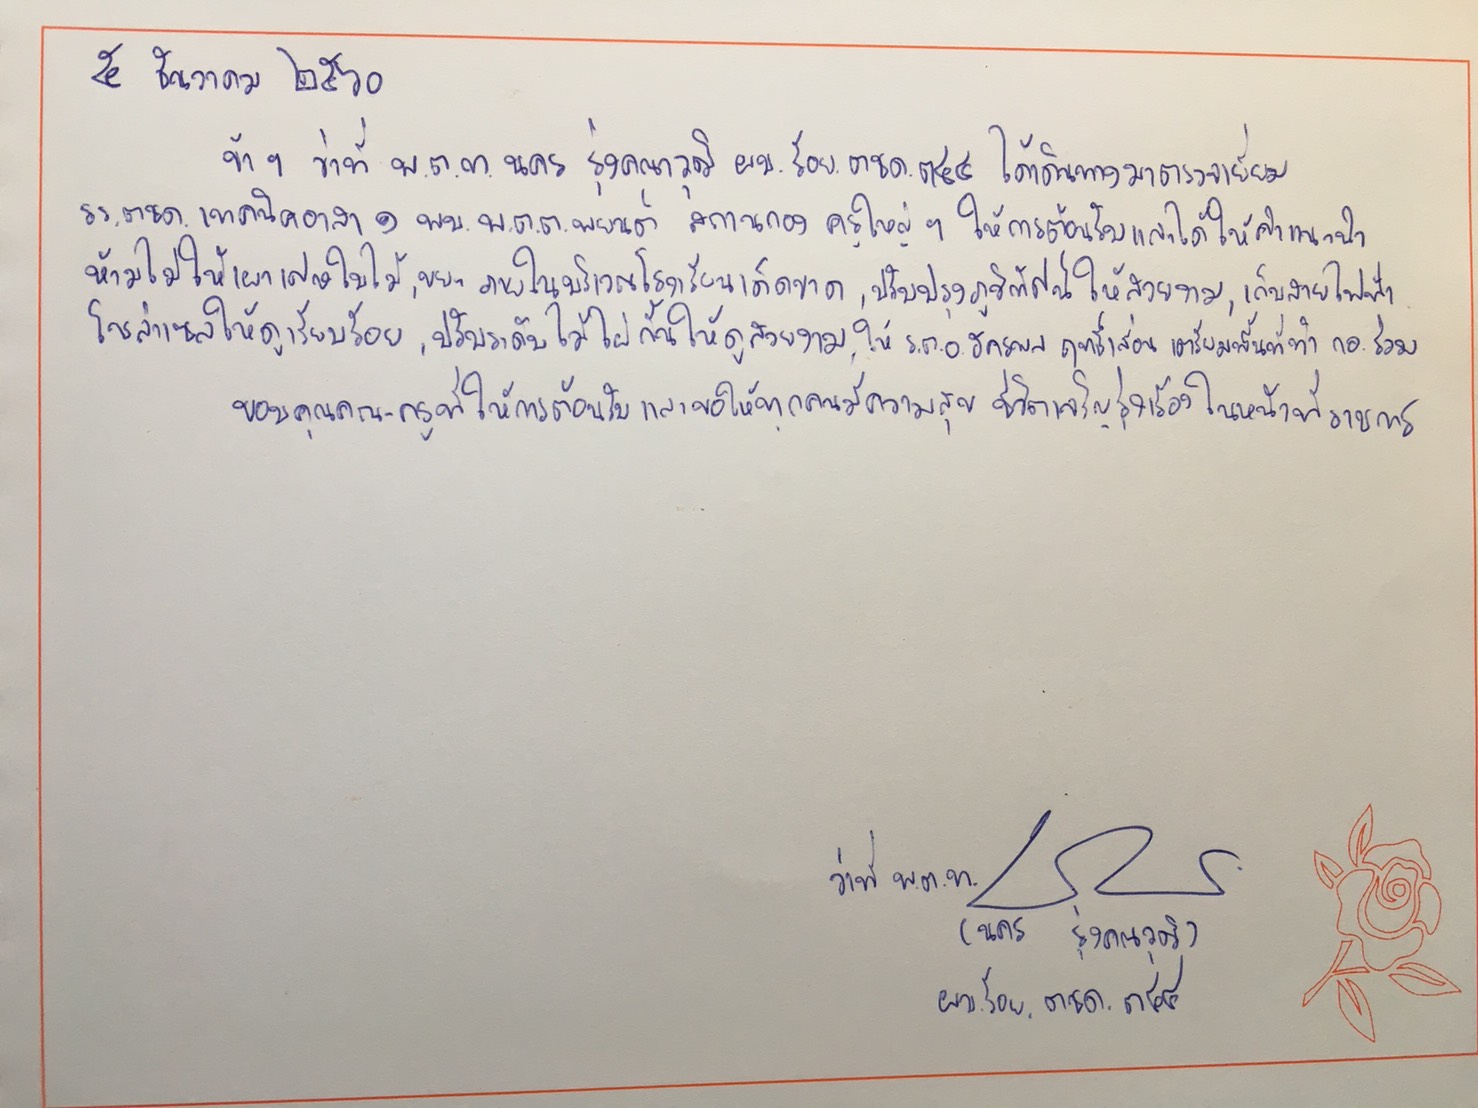 ๕ ธันวาคม ๒๕๖๐
ข้า ฯ ว่าที่ พ.ต.ท. นคร รุ่งคณาวุฒิ ผบ.ร้อย.ตชด.๓๔๔ ได้เดินทางมาตรวจเยี่ยม
รร.ตชด.เทคนิคอาสา ๑ พบ. พ.ต.ต.พยนต์ สถานกอง ครูใหญ่ ฯ ให้การต้อนรับและได้ให้คำแนะนำ
ห้ามไม่ให้เผาเศษใบไม้,ขยะ ภายในบริเวณโรงเรียนเด็ดขาด, ปรับปรุงภูมิทัศน์ให้สวยงาม, เก็บสายไฟฟ้า
โซล่าเซลให้ดูเรียบร้อย, ปรับระดับไม้ไผ่กั้นให้ดูสวยงาม, ให้ ร.ต.อ. เตรียมพื้นที่ทำ กอ.ร่วม
ขอบคุณคณะครูที่ให้การต้อนรับ และขอให้ทุกคนมีความสุข ชีวิตเจริญรุ่งเรืองในหน้าที่ราชการ
ว่าที่ พ.ต.ท.
(นคร รุ่งคณาวุฒิ)
ผบ.ร้อย. ตชด. ๓๔๔